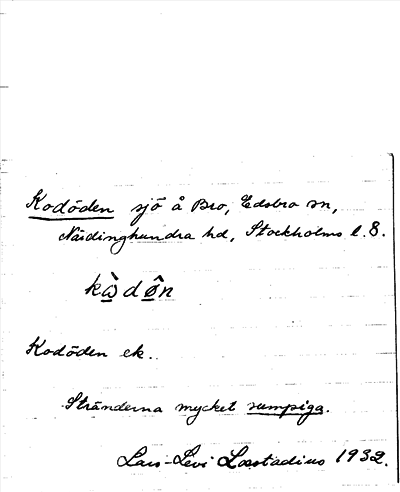 Kodöden sjö å Bro, Edsbro sn,
Närdinghundra hd, Stockholms l. 8.
kὼdôn
Kodöden ek.
Stränderna mycket sumpiga.
Lars-Levi Læstadius 1932.